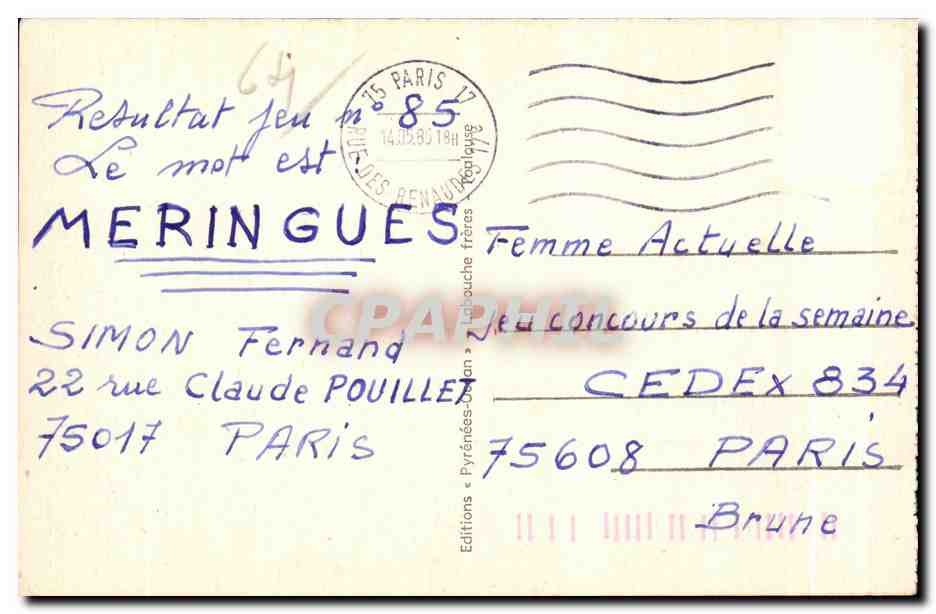 64
Resultat jeu n° 85
Le mot est
MERINGUES
SIMON Fernand
22 rue Claude POUILLET
75017 PARIS
75 PARIS 17
18H
RUE DES RENAUDES
Editions « Pyrénées-Océan » Labouche frères - Toulouse
Femme Actuelle
Jeu concours de la semaine
CEDEX 834
75608 PARIS
Brune
CPAPHIL